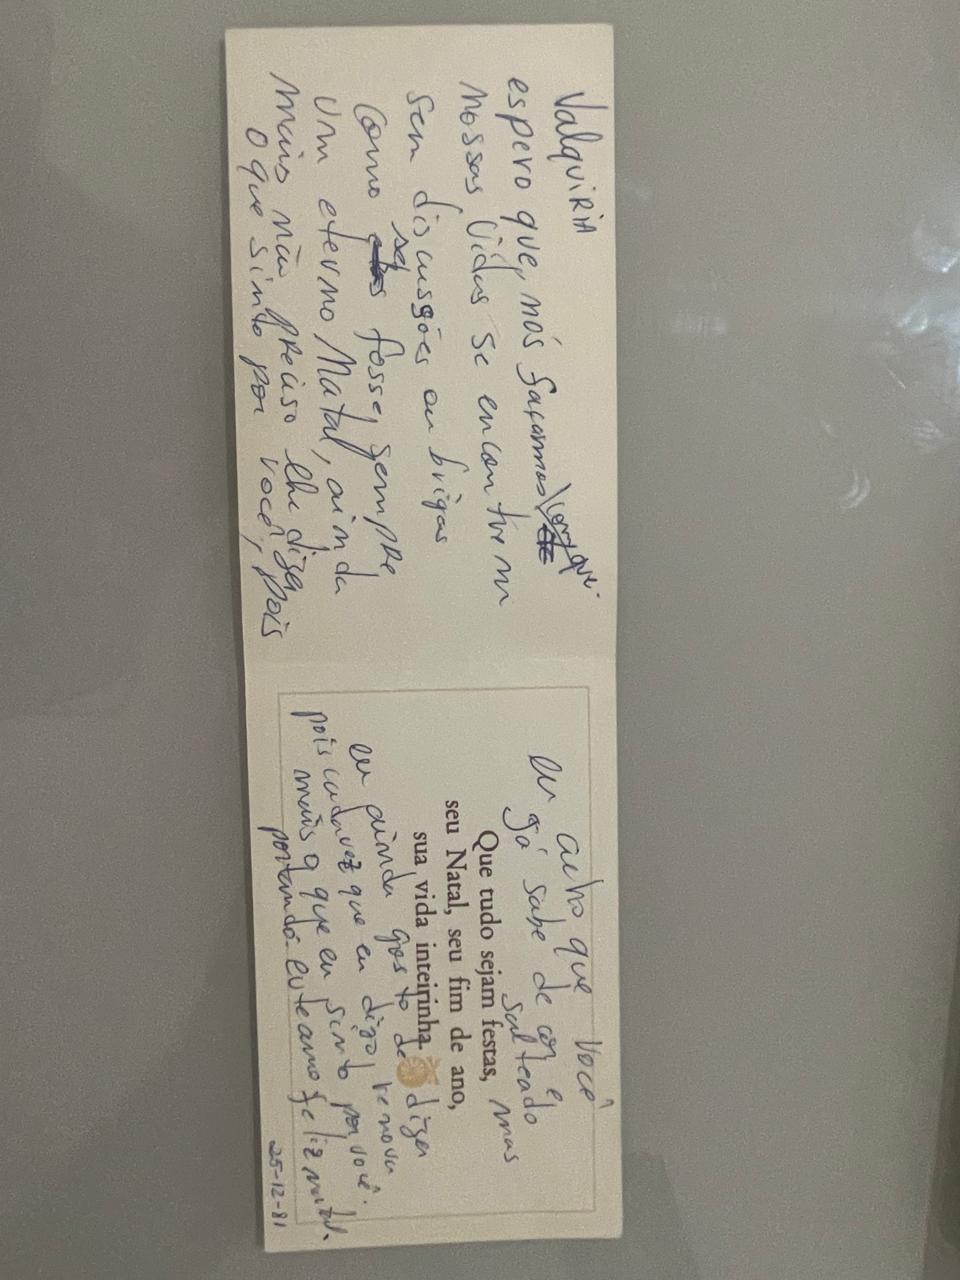 Valquiria
espero que, nós façamos com que.
nossas vidas se encontrem
sem discussões ou brigas
como se fosse, sempre,
um eterno Natal, ainda
mais não preciso lhe dizer
o que sinto por você, pois
eu acho que você
já sabe de cor e
salteado
mas
Que tudo sejam festas,
seu Natal, seu fim de ano,
sua vida inteirinha.
eu ainda gosto de dizer
pois cada vez que eu digo, renova
mais o que eu sinto por você.
portando. eu te amo feliz natal.
25-12-81